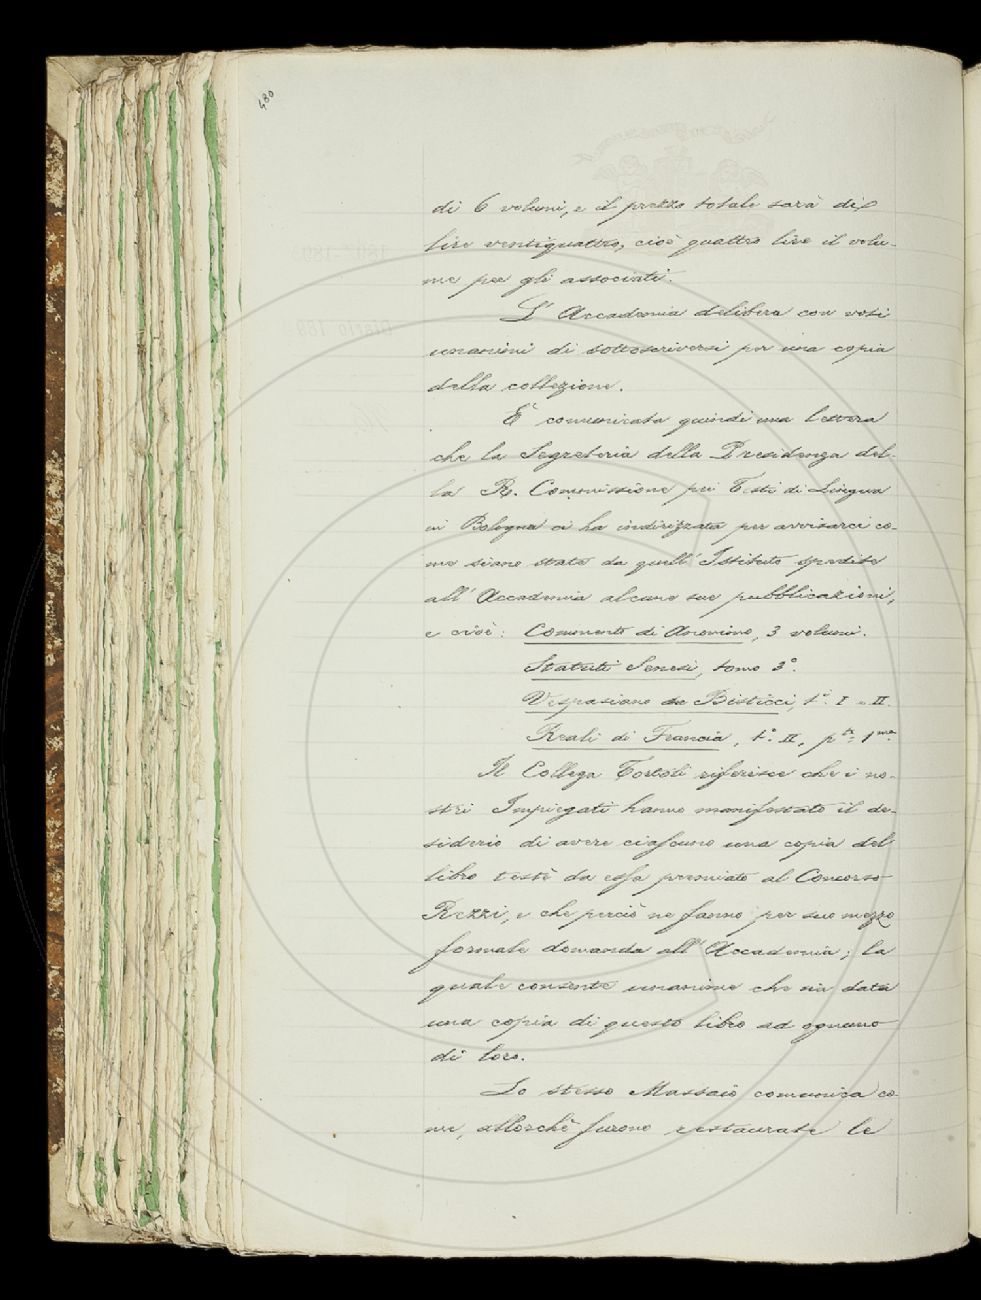 480
di 6 volumi, e il prezzo totale sarà di
lire ventiquattro, cioè quattro lire il volu-
me per gli associati.
L'Accademia delibera con voti
unanimi di sottoscriversi per una copia
della collezione.
È comunicata quindi una lettera
che la Segreteria della Presidenza del-
la R. Commissione pei Testi di Lingua
in Bologna ci ha indirizzata per avvisarci co-
me siano state da quell'Istituto spedite
all'Accademia alcune sue pubblicazioni,
e cioè: Commento di Anonimo, 3 volumi.
Statuti Senesi, tomo 3°.
Vespasiano da Bisticci, t.° I e II.
Reali di Francia, t.° II, p.te 1.ma
Il Collega Tortoli riferisce che i no-
stri Impiegati hanno manifestato il de-
siderio di avere ciascuno una copia del
libro testè da essa premiato al Concorso
Rezzi, e che perciò ne fanno per suo mezzo
formale domanda all'Accademia; la
quale consente unanime che sia data
una copia di questo libro ad ognuno
di loro.
Lo stesso Massaio comunica co-
me, allorchè furono restaurate le